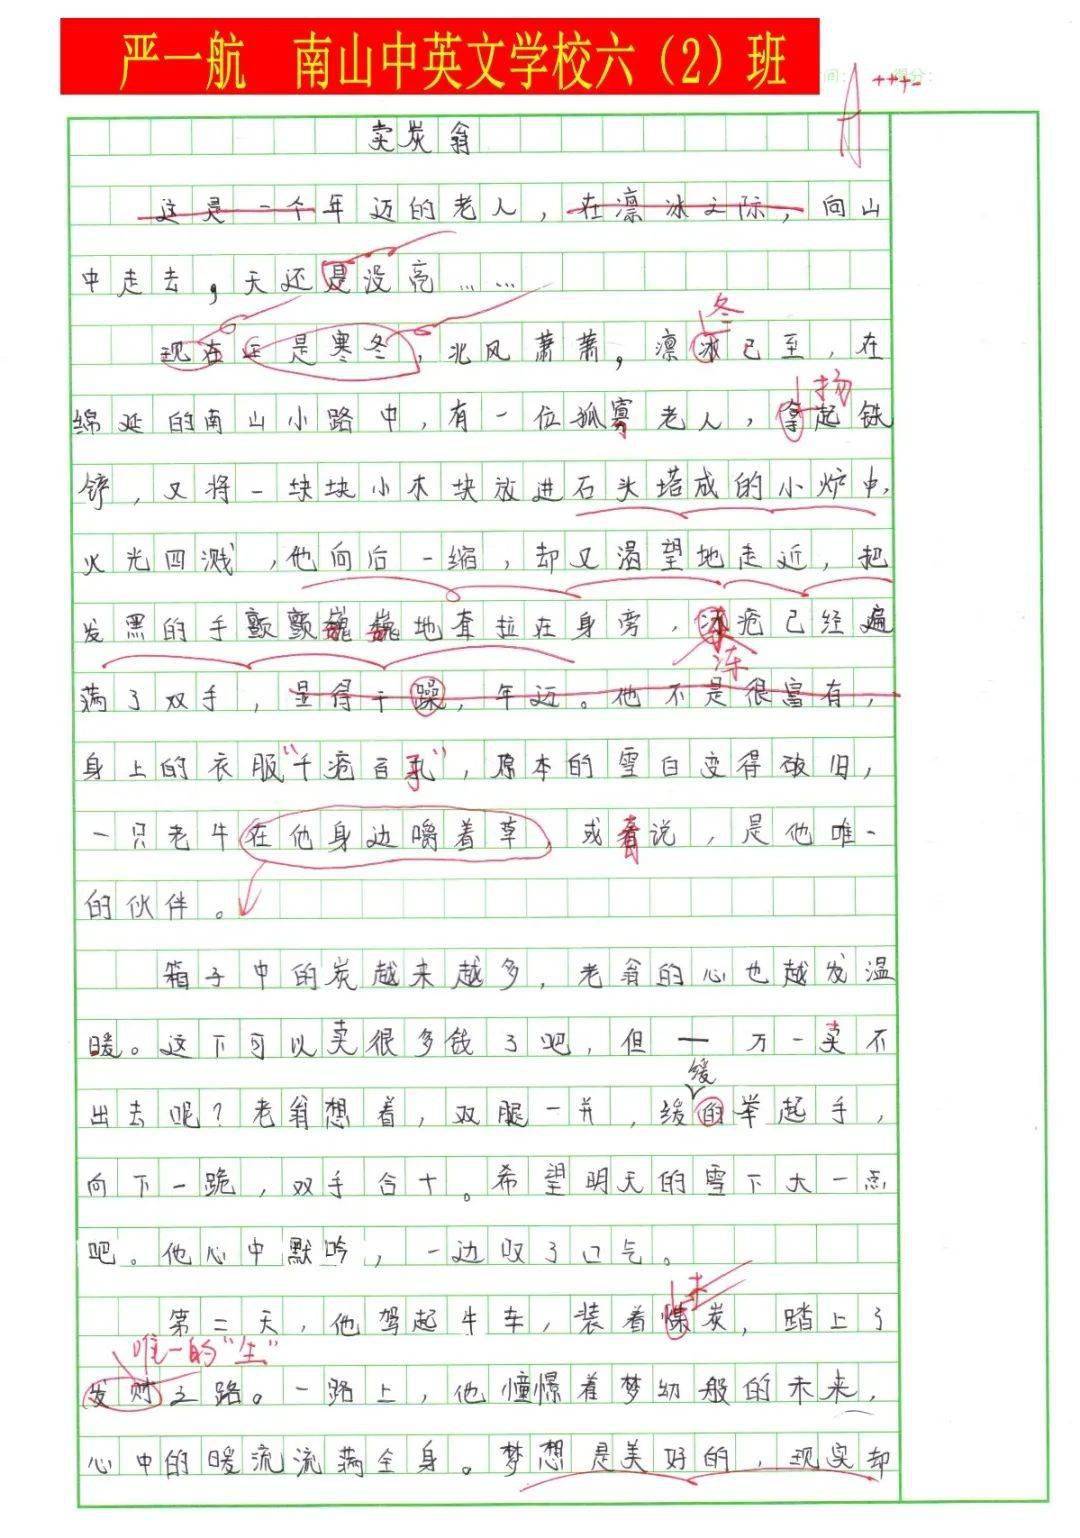 严一航 南山中英文学校六（2）班
间： 得分：
A +++-
卖炭翁
这是一个年迈的老人，在凛冰之际，向山
中走去，天还是没亮……
冬
现在正是寒冬，北风萧萧，凛冰已至，在
扬
绵延的南山小路中，有一位孤寡老人，拿起铁
铲，又将一块块小木块放进石头塔成的小炉中，
火光四溅，他向后一缩，却又渴望地走近，把
发黑的手颤颤巍巍地耷拉在身旁，冰疮已经遍
冻
满了双手，显得干躁，年迈。他不是很富有，
身上的衣服“千疮百孔”，原本的雪白变得破旧，
一只老牛在他身边嚼着草，或者说，是他唯一
的伙伴。
箱子中的炭越来越多，老翁的心也越发温
暖。这下可以卖很多钱了吧，但一万一卖不
缓
出去呢？老翁想着，双腿一并，缓的举起手，
向下一跪，双手合十。希望明天的雪下大一点
吧。他心中默吟，一边叹了口气。
木
第二天，他驾起牛车，装着煤炭，踏上了
唯一的“生”
发财之路。一路上，他憧憬着梦幻般的未来，
心中的暖流流满全身。梦想是美好的，现实却